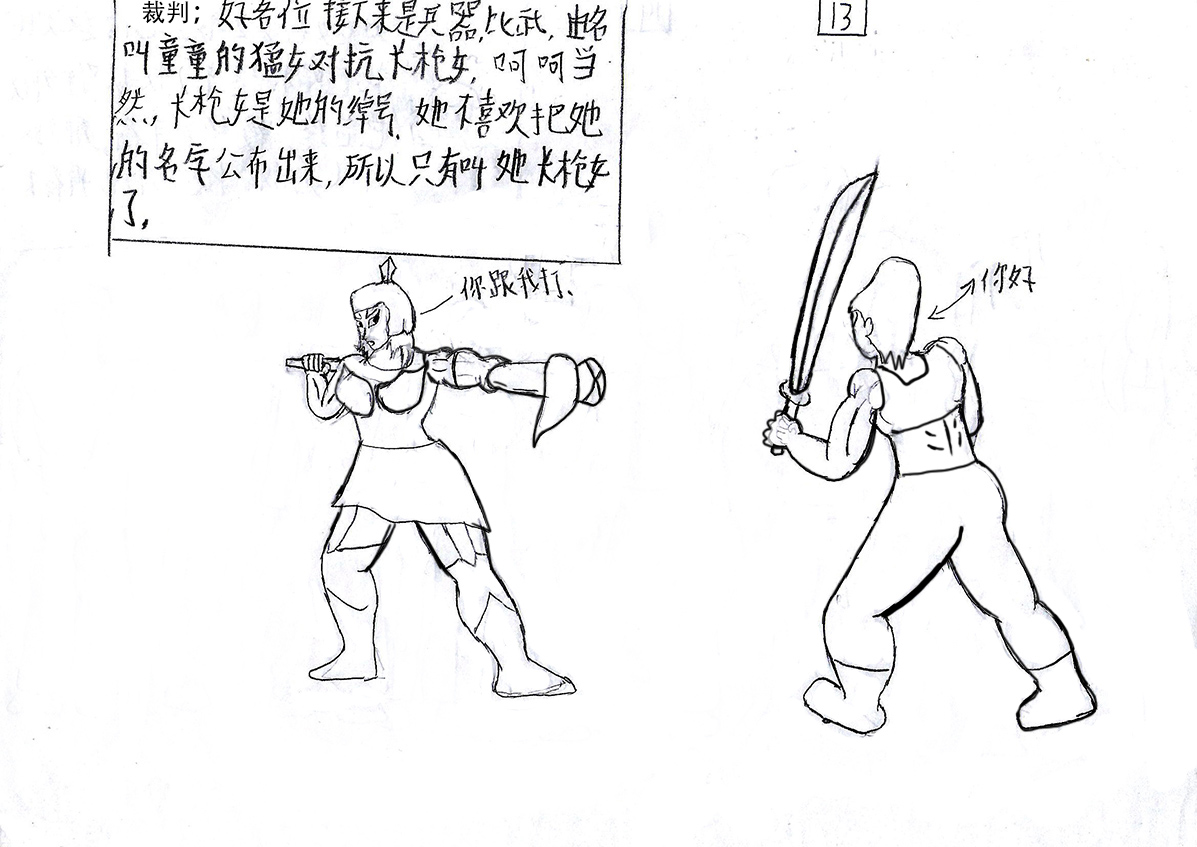 裁判；好各位 接下来是兵器，比武，由名
叫童童的猛女对抗长枪女，呵呵当
然，长枪女是她的绰号，她不喜欢把她
的名字公布出来，所以只有叫她长枪女
了，
13
你跟我打、
你好